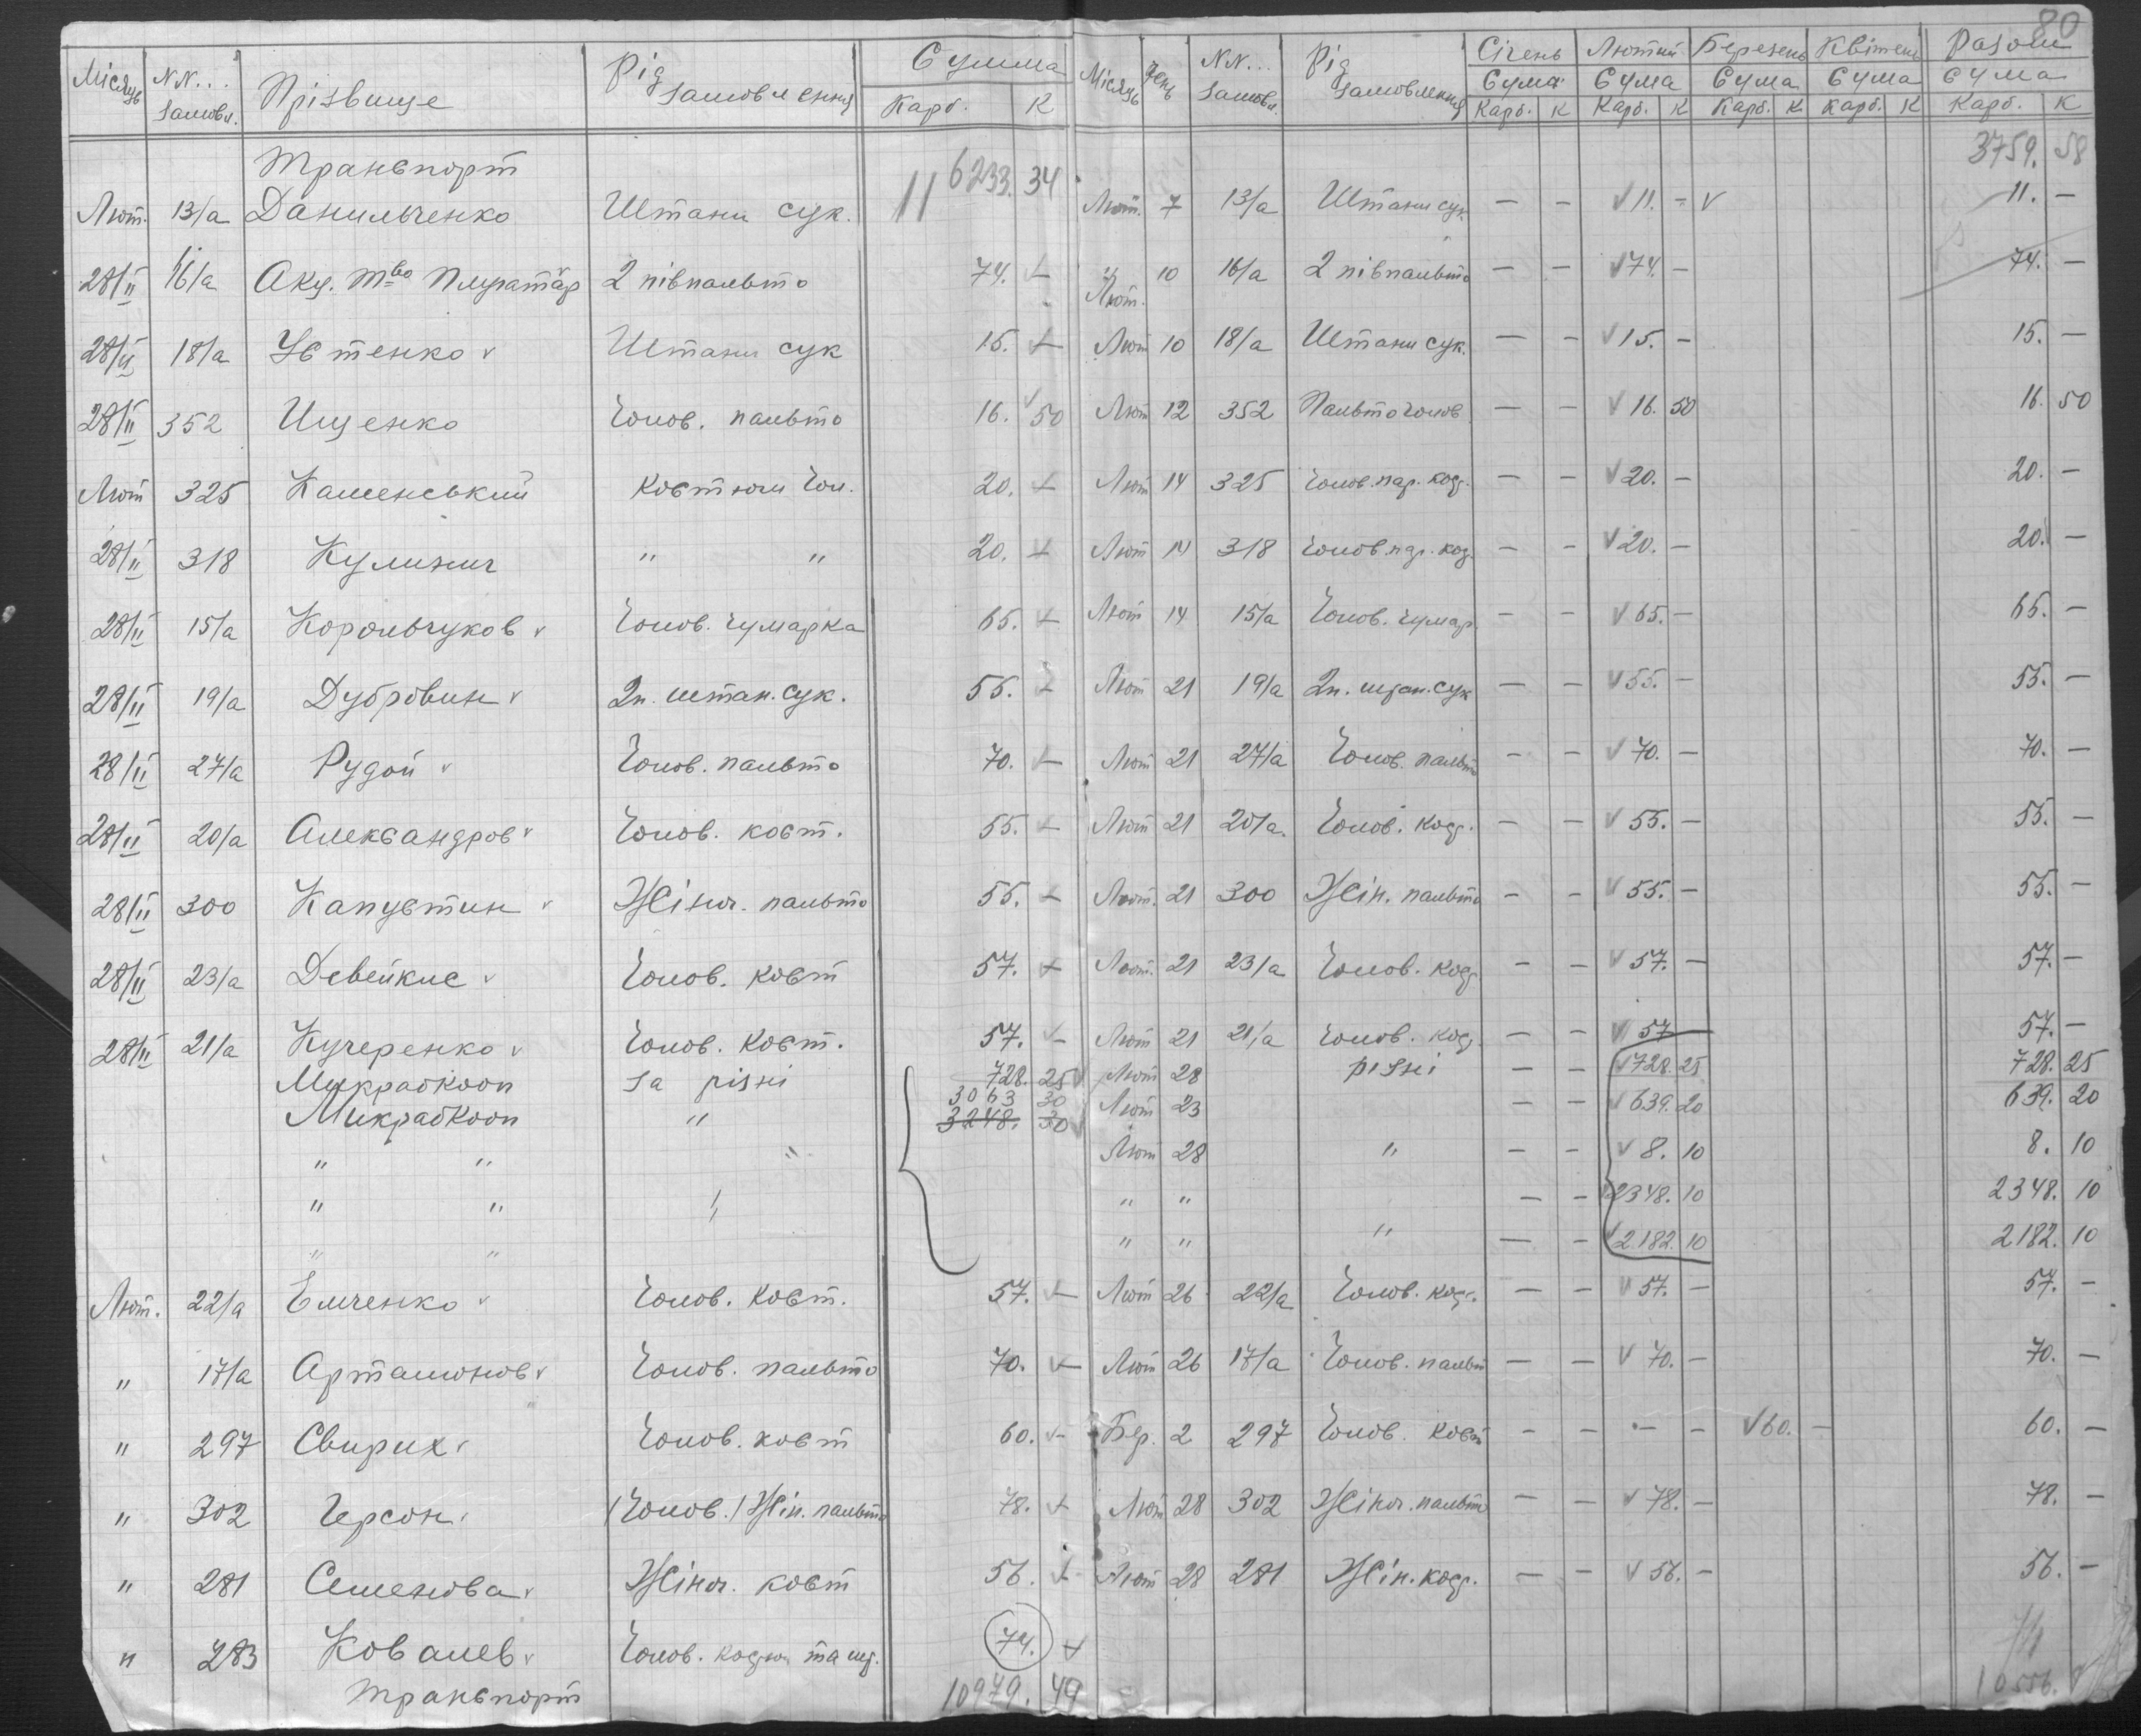 80
Місяць NN... замовл. Прізвище Рід замовлення Сумма Карб. К Місяць День NN... замовл. Рід замовлення Січень Сума Карб. К Лютий Сума Карб. К Березень Сума Карб. К Квітень Сума Карб. К Разом Сума Карб. К
Транспорт 6233. 34 3759. 58
Лют. 13/а Данильченко Штани сук. 11 Лют. 7 13/а Штани сук. — — √ 11. – √ 11. —
28/II 16/а Акц. Т-во Плугатар 2 півпальто 74. — Лют. 10 16/а 2 півпальто — — √ 74. — 74. —
28/II 18/а Устенко √ Штани сук 15. — Лют 10 18/а Штани сук. — — √ 15. — 15. —
28/II 352 Ищенко Чолов. пальто 16. 50 Лют 12 352 Пальто чолов — — √ 16. 50 16. 50
Лют 325 Каменський Костюм Чол. 20. — Лют 14 325 Чолов. пар. код. — — √ 20. — 20. —
28/II 318 Кулинич " " 20. — Лют 14 318 Чолов. пар. код. — — √ 20. — 20. —
28/II 15/а Корольчуков √ Чолов. чумарка 65. — Лют 14 15/а Чолов. чумар. — — √ 65. — 65. —
28/II 19/а Дубровин √ 2п. штан. сук. 55. — Лют 21 19/а 2п. штан. сук — — √ 55. — 55. —
28/II 27/а Рудой √ Чолов. пальто 70. — Лют 21 27/а Чолов. пальто — — √ 70. — 70. —
28/II 20/а Александров √ Чолов. кост. 55. — Лют 21 20/а. Чолов. код. — — √ 55. — 55. —
28/II 300 Капустин √ Жіноч. пальто 55. — Лют. 21 300 Жін. пальто — — √ 55. — 55. —
28/II 23/а Девейкис √ Чолов. кост 57. — Лют. 21 23/а Чолов. код — — √ 57. — 57. —
28/II 21/а Кучеренко √ Чолов. кост. 57. — Лют 21 21/а Чолов. код — — √ 57 — 57. —
Микраокооп за різні 728. 25 √ Лют 28 різні — — √ 728. 25 728. 25
Микраокооп " 3063 30 3248. 30 √ Лют 23 — — √ 639. 20 639. 20
" " " Лют 28 " — — √ 8. 10 8. 10
" " " " " — — √ 2348. 10 2348. 10
" " " " " — — √ 2182. 10 2182. 10
Лют. 22/а Емченко √ Чолов. кост. 57. — Лют 26 22/а Чолов. код. — — √ 57. — 57. —
" 17/а Артамонов √ Чолов. пальто 70. — Лют 26 17/а Чолов. пальт — — √ 70. — 70. —
" 297 Свирих √ Чолов. кост 60. — Бер. 2 297 Чолов. кост — — — — √ 60. — 60. —
" 302 Герсон √ /Чолов./ Жін. пальто 78. — Лют 28 302 Жіноч. пальто — — √ 78. — 78. —
" 281 Семенова √ Жіноч. кост 56. — Лют 28 281 Жін. код. — — √ 56. — 56. —
" 283 Ковалев √ Чолов. та 74. — 74
Транспорт 10979. 49 10556.